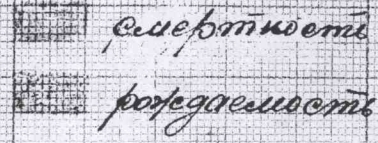 смертность
рождаемость